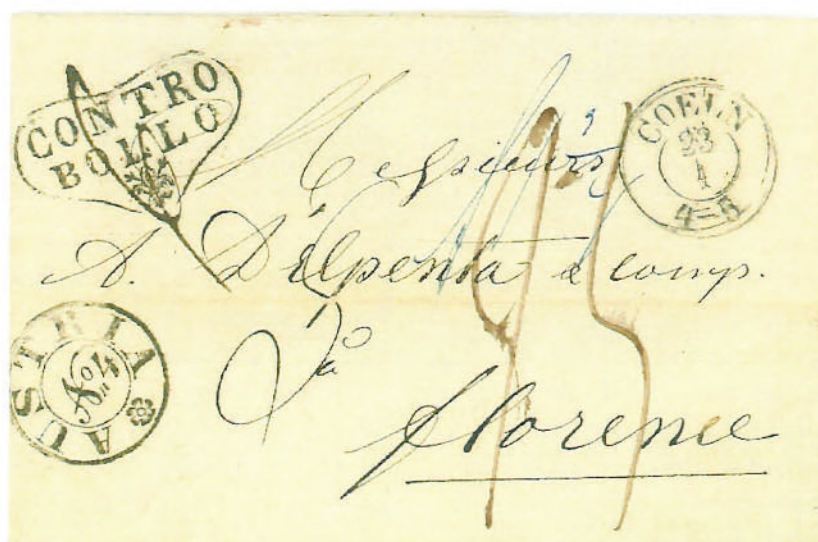 CONTRO
BOLLO
COELN
23
4
4-5
Messieurs
A. Dalpenta & comp.
à
Florence
AUSTRIA
No 4